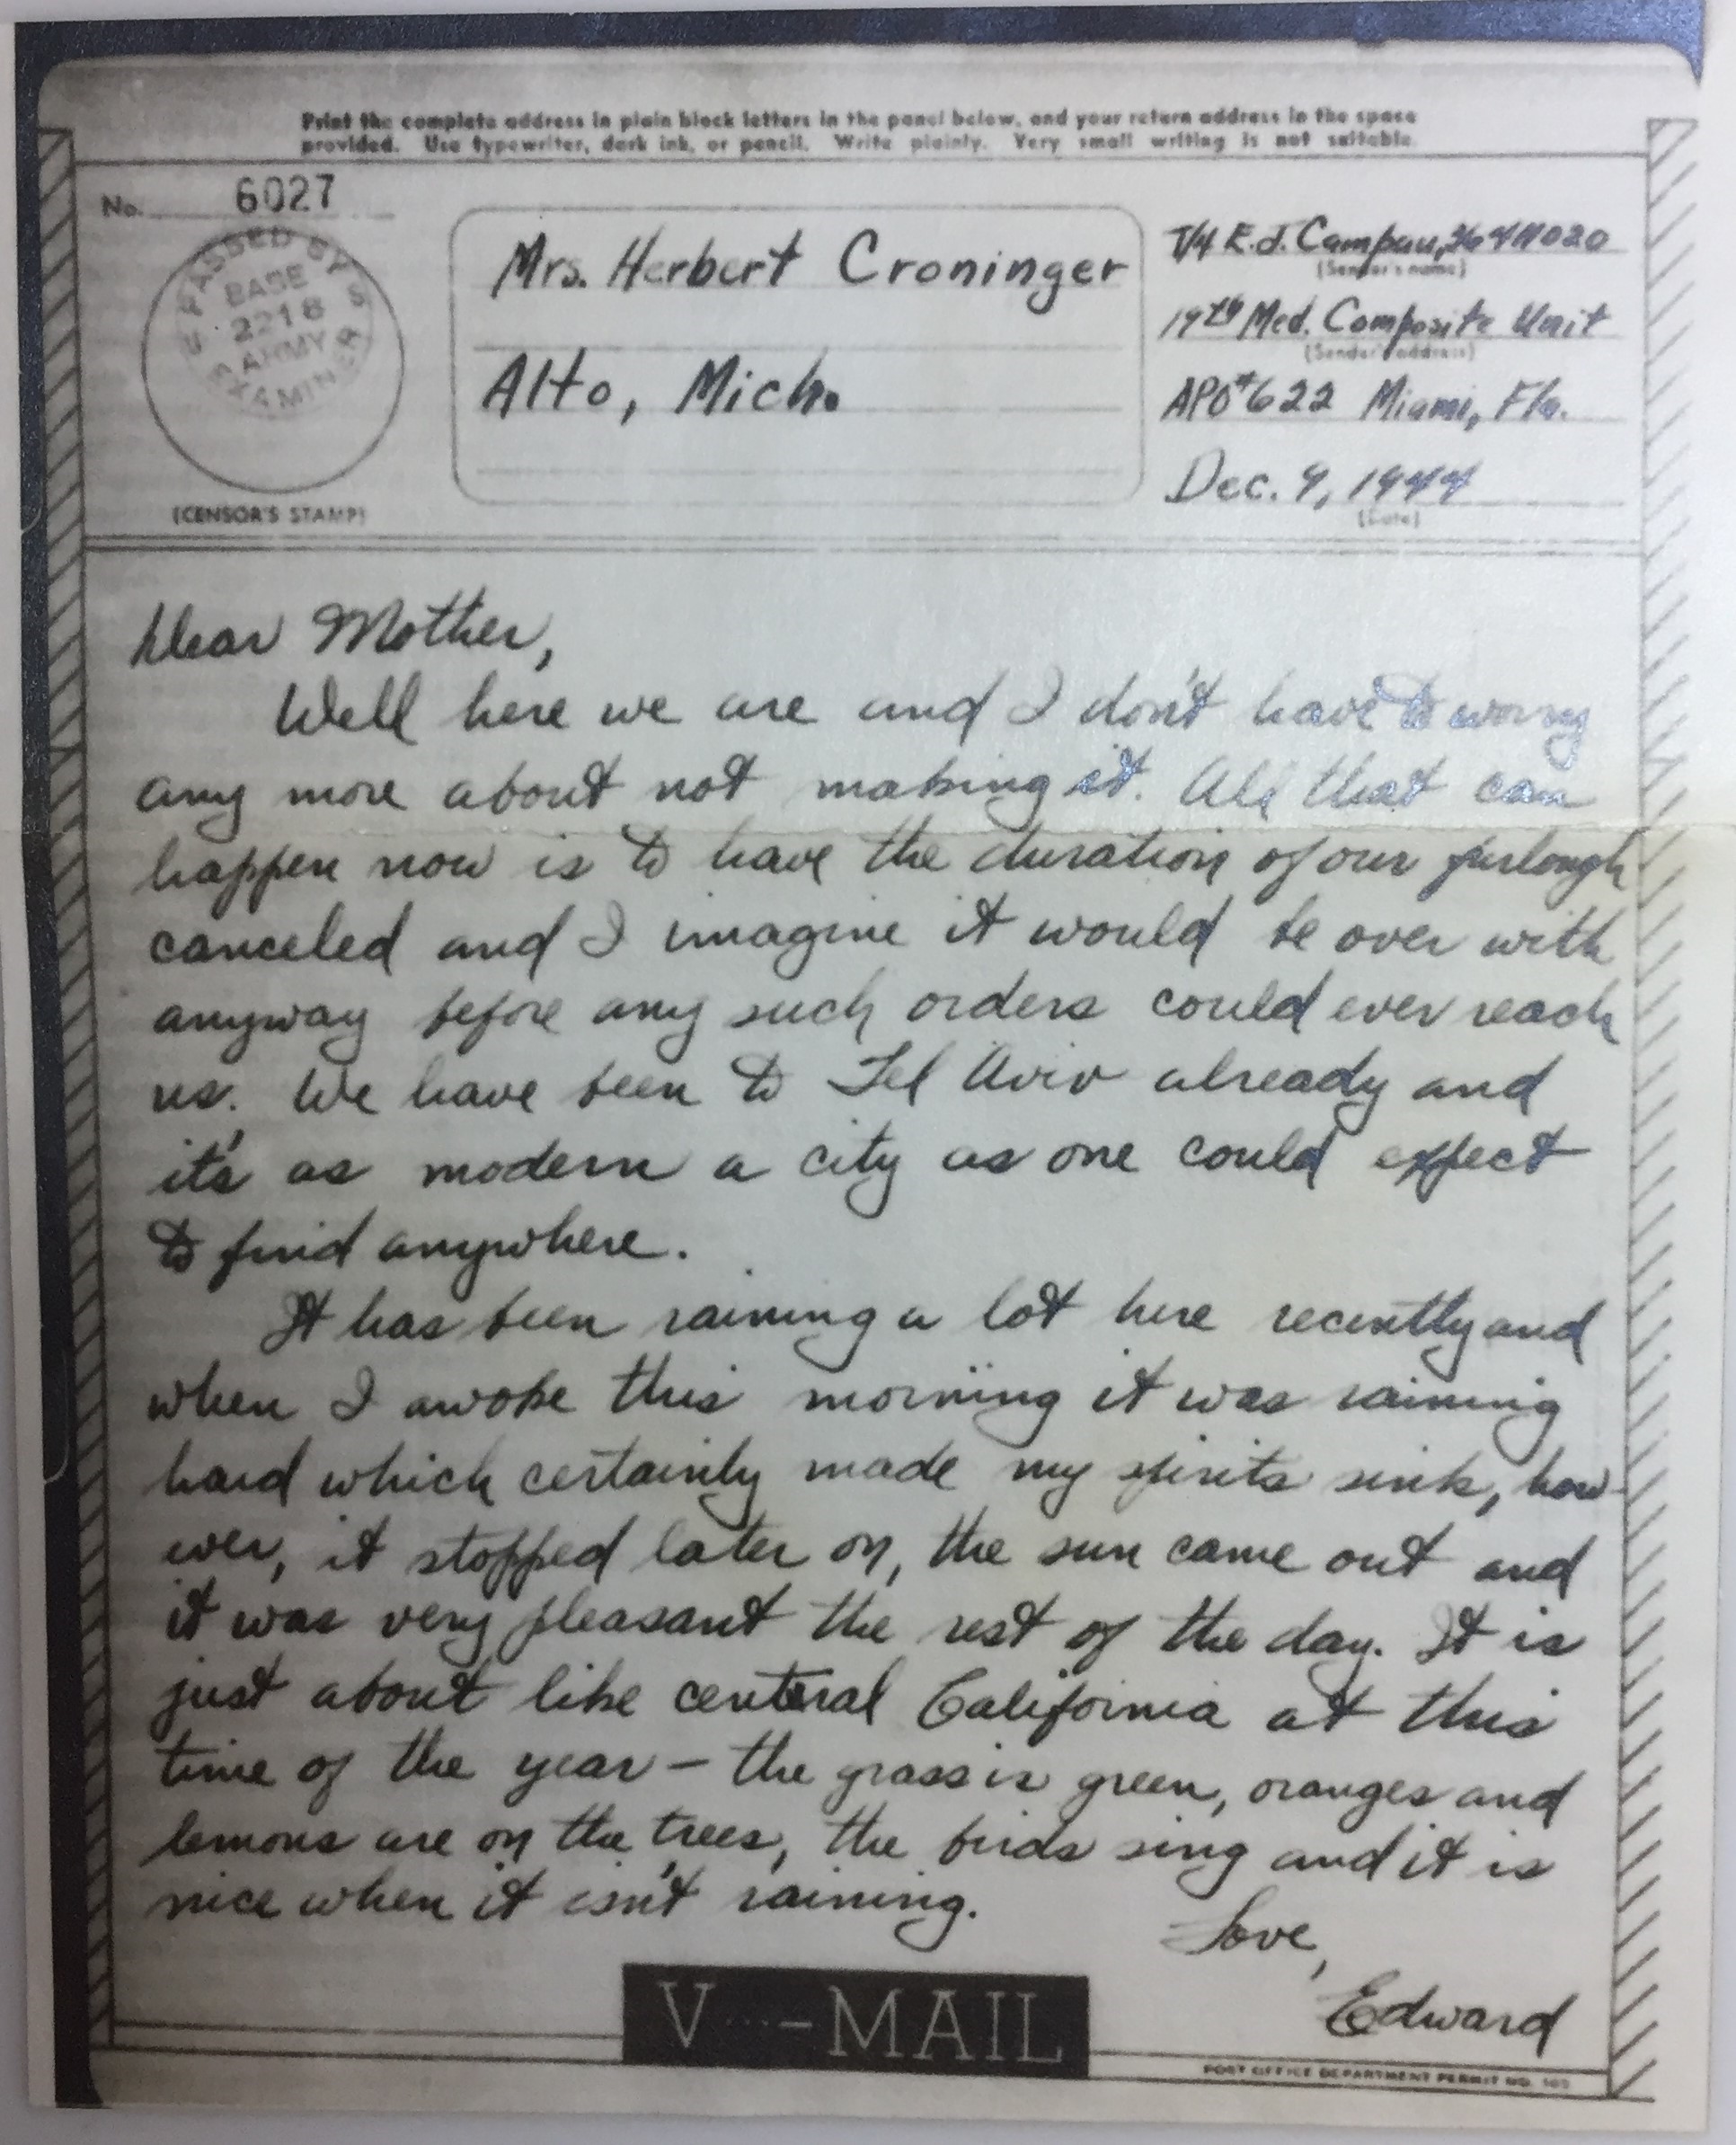 Print the complete address in plain block letters in the panel below, and your return address in the space
provided. Use typewriter, dark ink, or pencil. Write plainly. Very small writing is not suitable.
No. 6027
PASSED BY
BASE
2218
ARMY
EXAMINER
(CENSOR'S STAMP)
Mrs. Herbert Croninger
Alto, Mich.
T/4 E.J. Campau,
(Sender's name)
19th Med. Composite Unit
(Sender's address)
APO #622 Miami, Fla.
Dec. 9, 1944
(Date)
Dear Mother,
Well here we are and I don't have to worry
any more about not making it. All that can
happen now is to have the duration of our furlough
canceled and I imagine it would be over with
anyway before any such orders could ever reach
us. We have been to Tel Aviv already and
it's as modern a city as one could expect
to find anywhere.
It has been raining a lot here recently and
when I awoke this morning it was raining
hard which certainly made my spirits sink, how-
ever, it stopped later on, the sun came out and
it was very pleasant the rest of the day. It is
just about like centeral California at this
time of the year – the grass is green, oranges and
lemons are on the trees, the birds sing and it is
nice when it isn't raining.
Love,
Edward
V···–MAIL
POST OFFICE DEPARTMENT PERMIT NO.